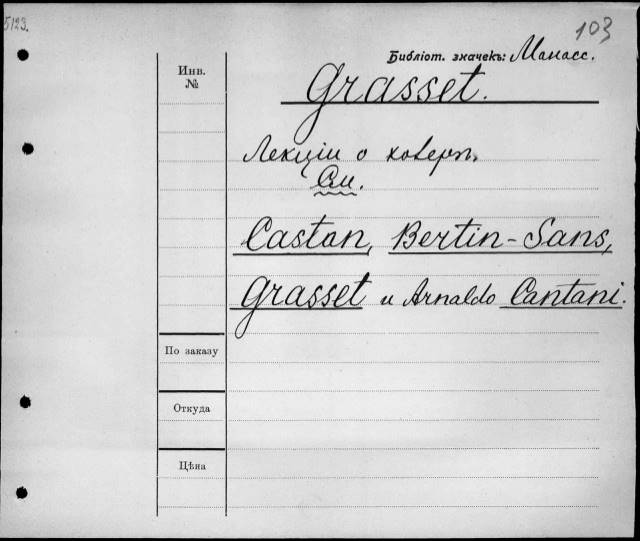 5123.
103
Библіот. значекъ: Манасс.
Инв.
№
Grasset.
Лекціи о холерѣ.
См.
Castan, Bertin-Sans,
Grasset и Arnaldo Cantani.
По заказу
Откуда
Цѣна